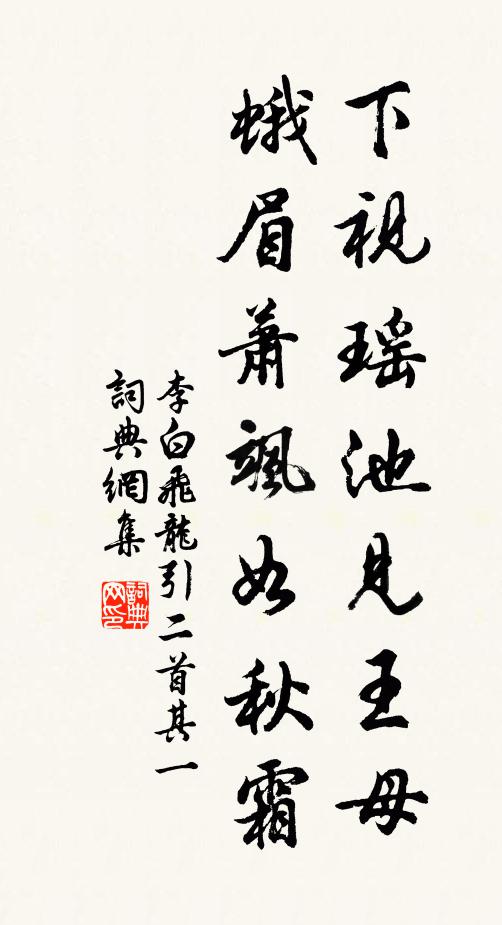 下視瑶池見王母
蛾眉蕭颯如秋霜
李白飛龍引二首其一
詞典網集
詞典网印